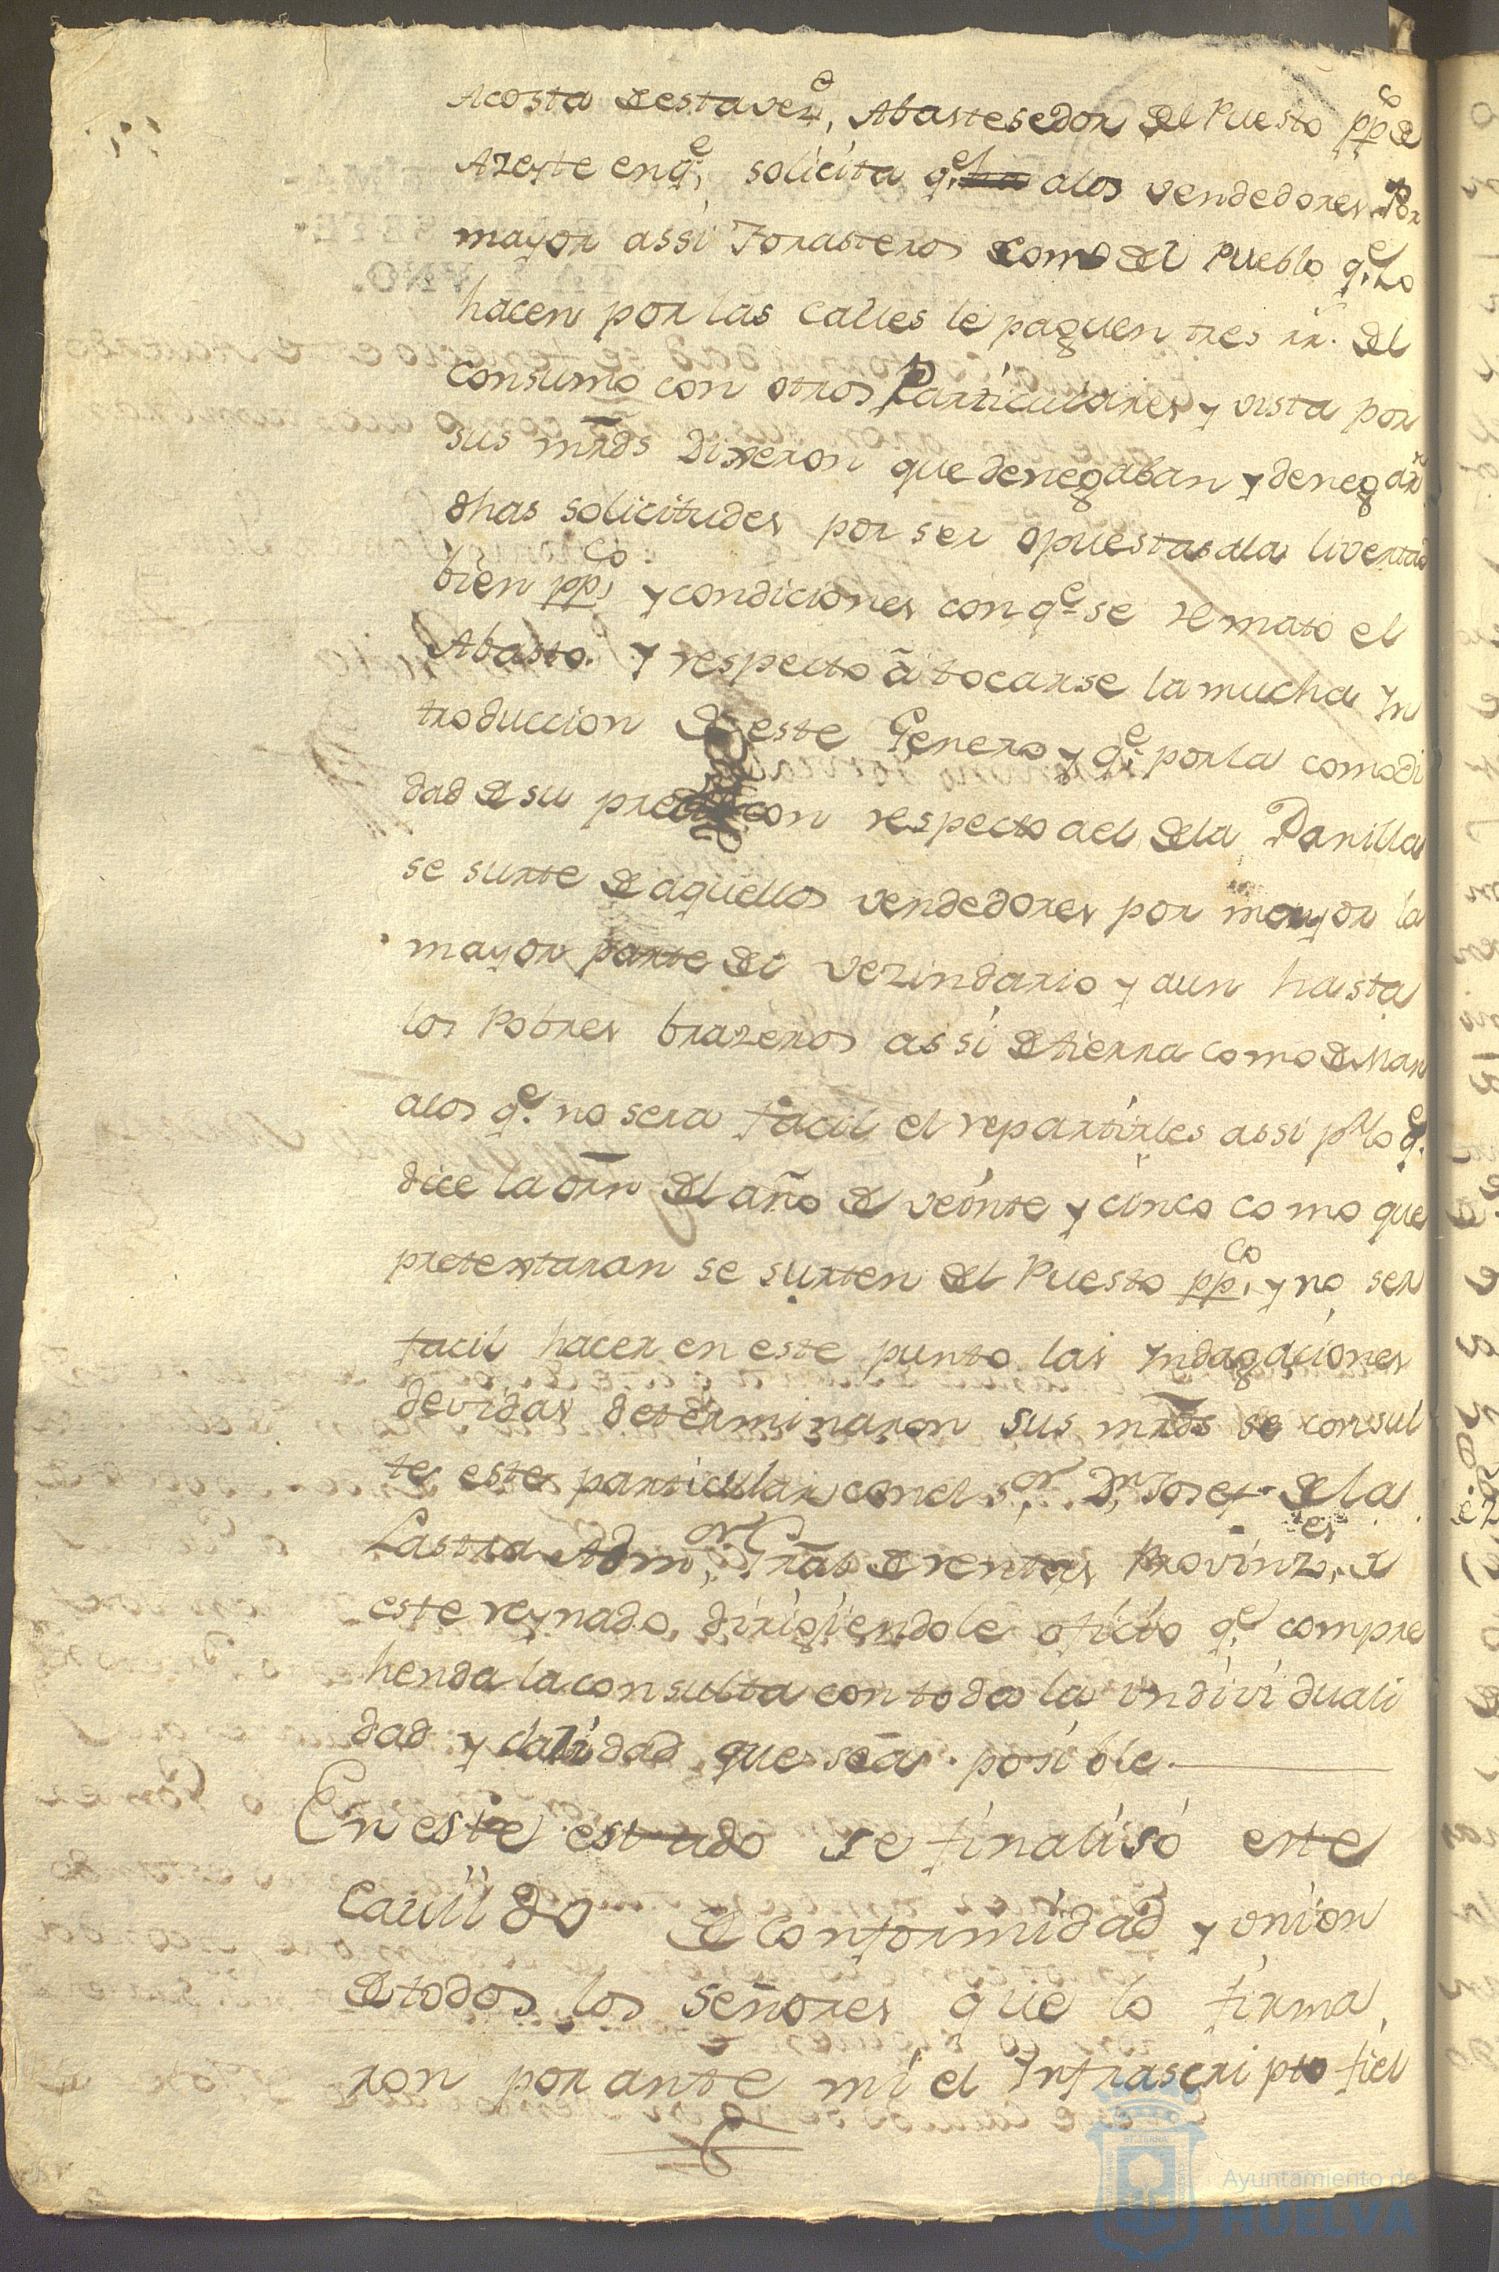 Acosta de esta vez.º, Abastesedor del Puesto pp.co de
Azeyte en q.e solicita q.e a los vendedores Por
mayor assi Forasteros como del Pueblo q.e lo
hacen por las calles le paguen tres rr.s del
consumo con otros Particulares y vista por
sus mrds Dixeron que denegaban y denegarn
dhas solicitudes por ser opuestas a la livertad
bien pp.co y condiciones con q.e se remato el
Abasto. y respecto â tocarse la mucha yn
troduccion de este Genero y q.e por la comodi
dad de su precio con respecto a el de la Panilla
se surte de aquellos vendedores por mayor la
mayor parte del vezindario y aun hasta
los Pobres brazeros assi de tierra como de Mar
a los q.e no sera facil el repartirles assi p.r lo q.e
dice la orn del año de veinte y cinco como que
pretextaran se surten del Puesto pp.co y no ser
facil hacer en este punto las yndagaciones
devidas determinaron sus mrds se consul
te este particular con el s.or D.n Josef de la
Lastra Adm.or Gral de rentas Provinz.es de
este reynado, dirigiendole oficio q.e compre
henda la consulta con toda la individuali
dad y claridad que sea posible.
En este estado se finalisó este
Cavildo de Conformidad y union
de todos los señores que lo firma
ron por ante mi el Infrascripto fiel
Ayuntamiento de
HUELVA